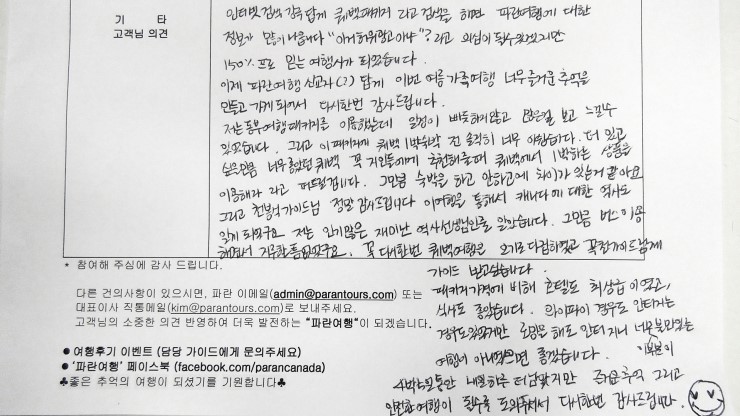 인터넷 검색 강국답게 퀘벡패키지 라고 검색을 하면 파란여행에 대한
기 타
고객님 의견
정보가 많이 나옵니다 "이거 허위광고 아냐"? 라고 의심이 될수 있겠지만
150% 프로 믿는 여행사가 되었습니다.
이제 파란여행 신교자(?) 답게 이번 여름 가족여행 너무 즐거운 추억을
만들고 가게 되어서 다시한번 감사드립니다.
저는 동부여행패키지를 이용했는데 일정이 빠듯하지않고 많은걸 보고 느낄수
있었습니다. 그리고 이 패키지에 퀘벡 1박숙박 건 솔직히 너무 아쉽습니다. 더 있고
싶은만큼 너무 좋았던 퀘벡 꼭 지인들에게 추천해줄때 퀘벡에서 1박하는 상품을
이용해라 라고 할겁니다. 그만큼 숙박을 하고 안하고에 차이가 있는거 같아요
그리고 가이드님 정말 감사드립니다 이여행을 통해서 캐나다에 대한 역사도
알게 되었구요 저는 인기많은 재미난 역사선생님인줄 알았습니다. 그만큼 버스 이동
하면서 지루할틈없었구요. 꼭 다시한번 퀘벡여행을 오기로 다짐하였고 꼭 가이드님께
가이드 받고싶습니다.
* 참여해 주심에 감사 드립니다.
패키지가격에 비해 호텔도 최상급이였고,
다른 건의사항이 있으시면, 파란 이메일(admin@parantours.com) 또는
대표이사 직통메일(kim@parantours.com)로 보내주세요.
고객님의 소중한 의견 반영하여 더욱 발전하는 "파란여행"이 되겠습니다.
식사도 좋았습니다. 와이파이 경우도 안터지는
경우도 있었지만 로밍을 해도 안터지니 너무 불만있는
여행이 아니었으면 좋겠습니다. 이부분이
● 여행후기 이벤트 (담당 가이드에게 문의주세요)
● '파란여행' 페이스북 (facebook.com/parancanada)
♣좋은 추억의 여행이 되셨기를 기원합니다♣
4박5일동안 내일 하루 더 남았지만 즐거운 추억 그리고
안전한여행이 될수록 도와주셔서 다시한번 감사드립니다.